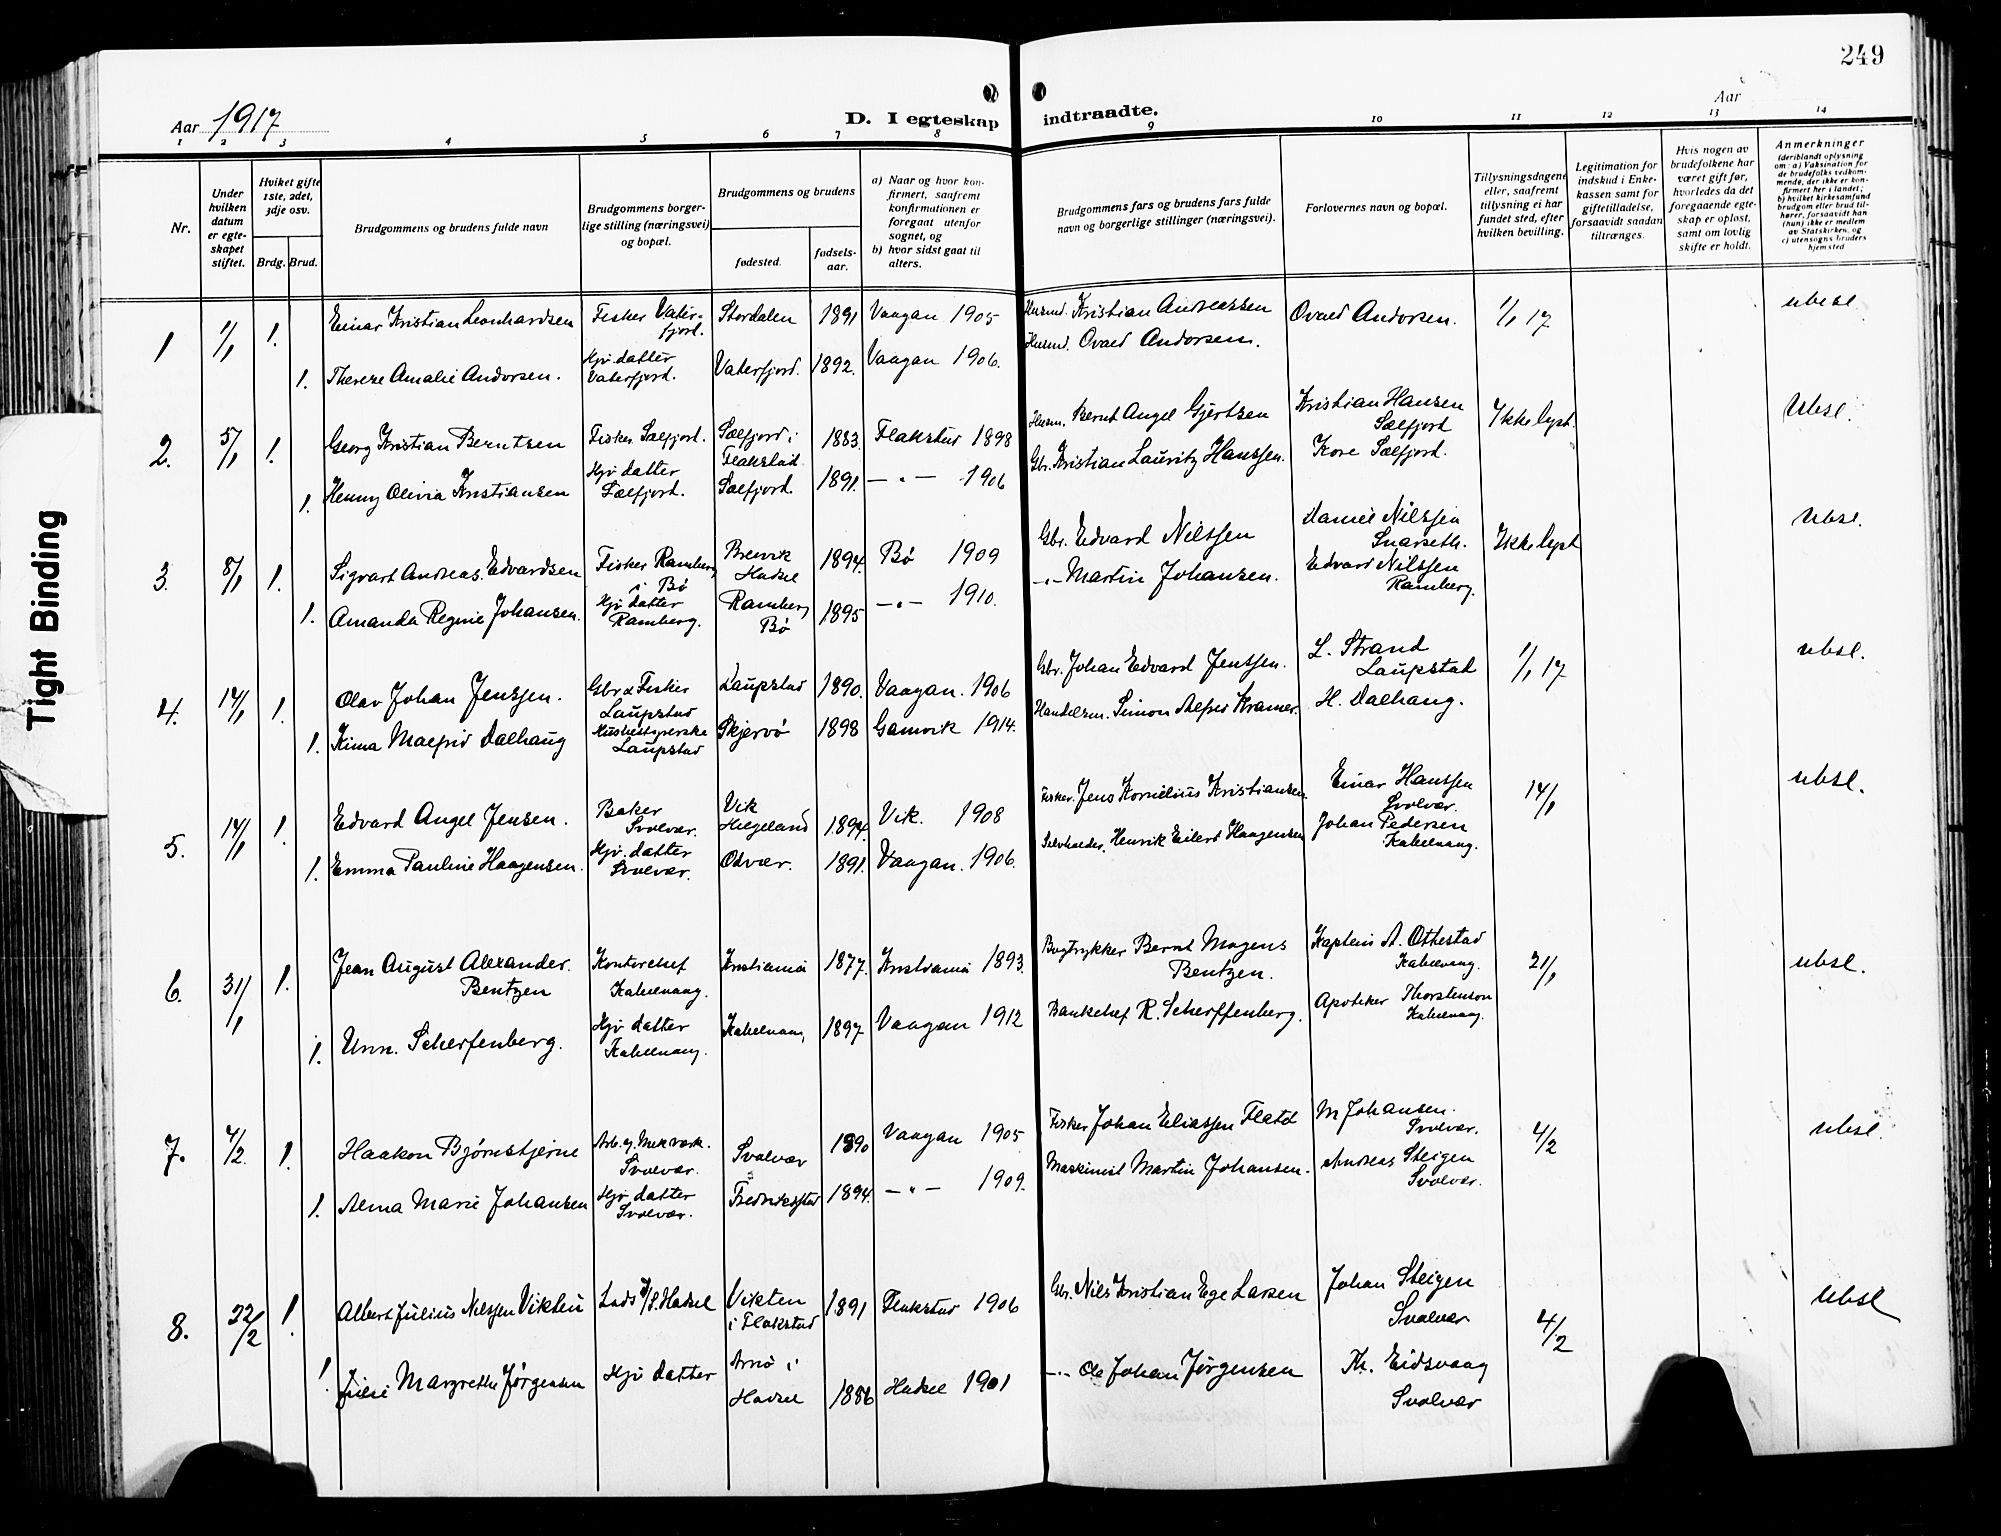 249
Aar 1917.
D. I egteskap indtraadte.
Aar
1 2 3 4 5 6 7 8 9 10 11 12 13 14
Nr.
Under hvilken datum er egteskapet stiftet.
Hviket gifte 1ste, 2det, 3dje osv.
Brdg. Brud.
Brudgommens og brudens fulde navn
Brudgommens borgerlige stilling (næringsvei) og bopæl.
Brudgommens og brudens
fødested.
fødselsaar.
a) Naar og hvor konfirmert, saafremt konfirmationen er foregaat utenfor sognet, og
b) hvor sidst gaat til alters.
Brudgommens fars og brudens fars fulde navn og borgerlige stillinger (næringsvei).
Forlovernes navn og bopæl.
Tillysningsdagene eller, saafremt tillysning ei har fundet sted, efter hvilken bevilling.
Legitimation for indskud i Enkekassen samt for giftetilladelse, forsaavidt saadan tiltrænges.
Hvis nogen av brudefolkene har været gift før, hvorledes da det foregaaende egteskap er opløst, samt om lovlig skifte er holdt.
Anmerkninger
(deriblandt oplysning om: a) Vaksination for de brudefolks vedkommende, der ikke er konfirmert her i landet; b) hvilket kirkesamfund brudgom eller brud tilhører, forsaavidt han (hun) ikke er medlem av Statskirken, og c) utensogns bruders hjemsted
1 1/1 1. Einar Kristian Leonhardsen Fisker Vaterfjord. Stordalen 1891 Vaagan 1905 Husmd. Kristian Andreassen Ovaed Andorsen. 1/1 17 ubesl
1. Therese Amalie Andorsen. Hjv. datter Vaterfjord. Vaterfjord. 1892. Vaagan 1906. Husmd. Ovaed Andorsen.
2. 5/1 1. Georg Kristian Berntsen Fisker Selfjord. Selfjord i Flakstad 1883. Flakstad 1898 Husm. Bernt Angel Gjertsen Kristian Hansen Selfjord Ikke lyst. Ubsl.
1. Henny Olivia Kristiansen Hjv. datter Selfjord. Selfjord. 1891. — " — 1906 Gbr. Kristian Lauritz Hanssen. Kore Selfjord.
3. 8/1 1. Sigvart Andreas Edvardsen Fisker Ramberg i Bø Breivik Hadsel 1894. Bø 1909 Gbr. Edvard Nilssen Daniel Nilssen Snarseth. Ikke lyst Ubsl.
1. Amanda Regine Johansen. Hjv. datter Ramberg. Ramberg Bø 1895 — " — 1910. - " - Martin Johansen. Edvard Nilssen Ramberg.
4. 14/1 1. Olav Johan Jenssen. Gbr & Fisker Laupstad Laupstad 1890. Vaagan. 1906 Gbr. Johan Edvard Jenssen. L. Strand Laupstad 1/1 17 ubsl.
1. Kima Malfrid Dalhaug Husbestyrerske Laupstad Skjervø 1898 Gamvik 1914. Handelsm. Simon Alfred Kramer. H. Dalhaug.
5. 14/1 1. Edvard Angel Jensen. Baker Svolvær. Vik Helgeland 1894. Vik. 1908 Fisker. Jens Kornelius Kristiansen Einar Hanssen Svolvær. 14/1 ubsl.
1. Emma Pauline Haagensen. Hjv. datter Svolvær. Odvær. 1891. Vaagan. 1906. Henrik Eilert Haagensen Johan Pedersen Kabelvaag.
6. 31/1 1. Jean August Alexander Bentzen Kontorchef Kabelvaag. Kristiania 1877. Kristiania 1893. Bogtrykker Bernt Mogens Bentzen. Kaptein A. Ottestad Kabelvaag. 21/1 ubsl.
1. Unn. Scherfenberg. Hjv. datter Kabelvaag. Kabelvaag 1897 Vaagan 1912 Bankchef R. Scherffenberg. Apoteker Thorstenson Kabelvaag.
7. 4/2. 1. Haakon Bjørnstjerne Arb. v. Mek. værk. Svolvær. Svolvær 1890 Vaagan 1905 Fisker Johan Eliassen Flatø M Johansen. Svolvær. 4/2 ubsl.
1. Alma Marie Johansen Hjv. datter Svolvær. Fredrikstad 1894. — " — 1909. Maskinist Martin Johansen. Andreas Steigen Svolvær.
8. 22/2 1. Albert Julius Nilssen Vikten Lods D/S. Hadsel Vikten i Flakstad 1891 Flakstad 1906 Gbr. Nils Kristian Ege Larsen Johan Steigen Svolvær 4/2 Ubsl
1. Julie Margrethe Jørgensen Hjv datter Arnø i Hadsel 1886 Hadsel 1901 - " - Ole Johan Jørgensen Th. Eidsvaag Svolvær
Tight Binding